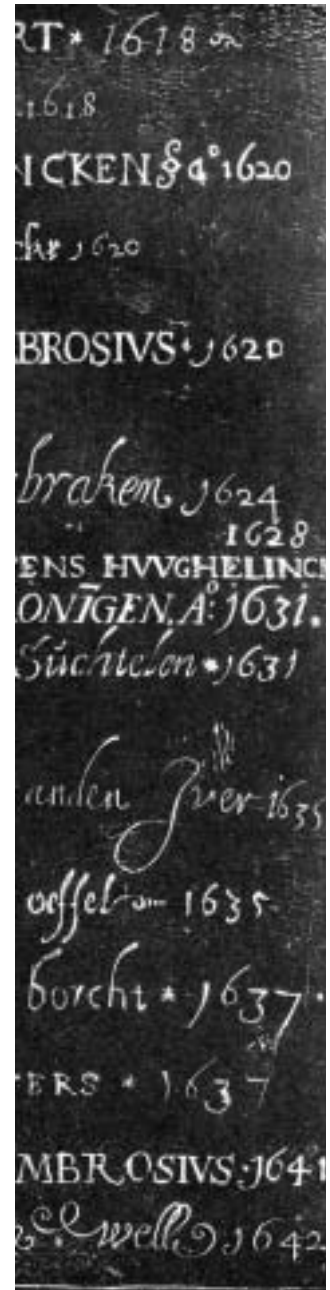 RT * 1618
1618
ICKEN § aº 1620
chr 1620
BROSIVS · 1620
braken 1624
1628
ENS HVVGHELINCK
ONIGEN. Aº: 1631.
Süchtelen * 1631
anden Zver 1635
oeffel 1635
borcht * 1637 ·
TERS * 1637
MBROSIVS · 1641
well 1642